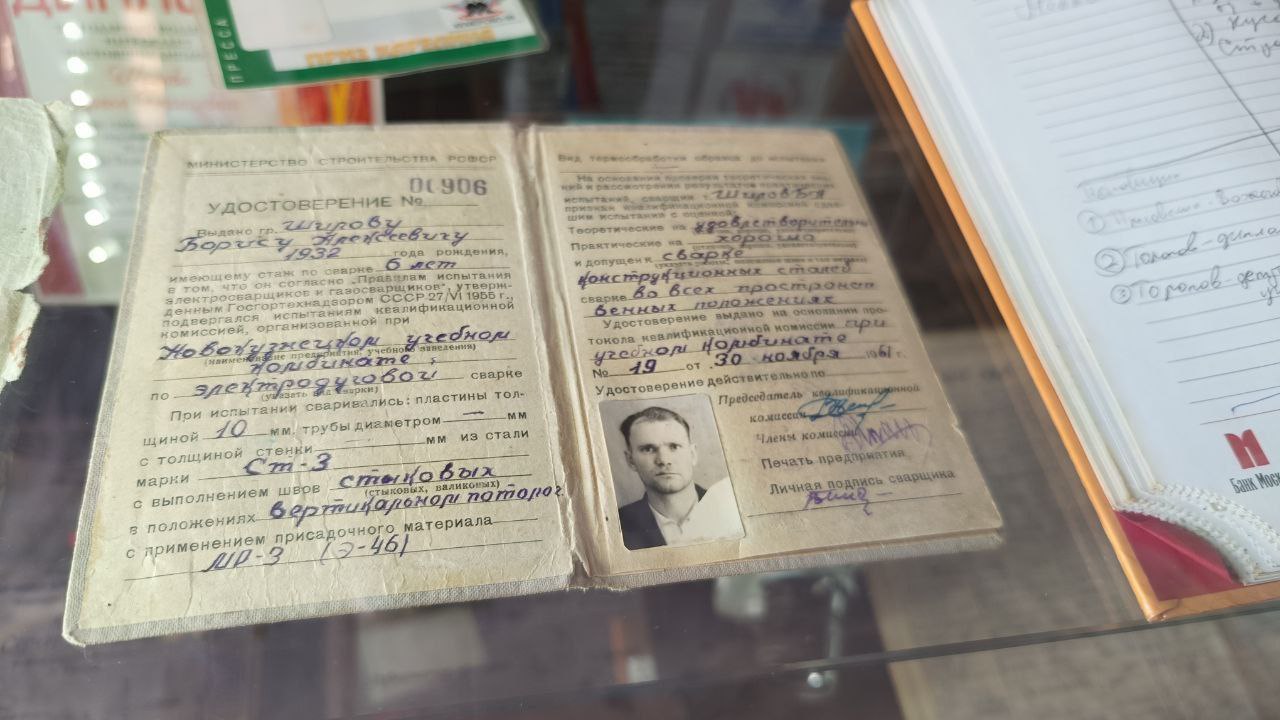 ПРЕССА
МИНИСТЕРСТВО СТРОИТЕЛЬСТВА РСФСР
00906
УДОСТОВЕРЕНИЕ №
Выдано гр. Широву
Борису Алексеевичу
1932 года рождения,
имеющему стаж по сварке 6 лет
в том, что он согласно „Правилам испытания
электросварщиков и газосварщиков", утверж-
денным Госгортехнадзором СССР 27/VI 1955 г.,
подвергался испытаниям квалификационной
комиссией, организованной при
Новокузнецком учебном
(наименование предприятия, учебного заведения)
комбинате
по электродуговой сварке
(указать вид сварки)
При испытании сваривались: пластины тол-
щиной 10 мм, трубы диаметром — мм
с толщиной стенки мм из стали
марки Ст-3
с выполнением швов стыковых
(стыковых, валиковых)
в положениях вертикальном потолоч
с применением присадочного материала
МР-3 (Э-46)
Вид термообработки образцов до испытания
На основании проверки теоретических зна-
ний и рассмотрения результатов практических
испытаний, сварщик т. Широв Б-А
признан квалификационной комиссией сдав-
шим испытания с оценкой:
Теоретические на удовлетворительно
Практические на хорошо
и допущен к сварке
конструкционных сталей
сварке во всех пространст
венных положениях
Удостоверение выдано на основании про-
токола квалификационной комиссии при
учебном комбинате
№ 19 от „30 ноября 1961 г.
Удостоверение действительно по
Председатель квалификационной
комиссии
Члены комиссии
Печать предприятия
Личная подпись сварщика
Банк Моск